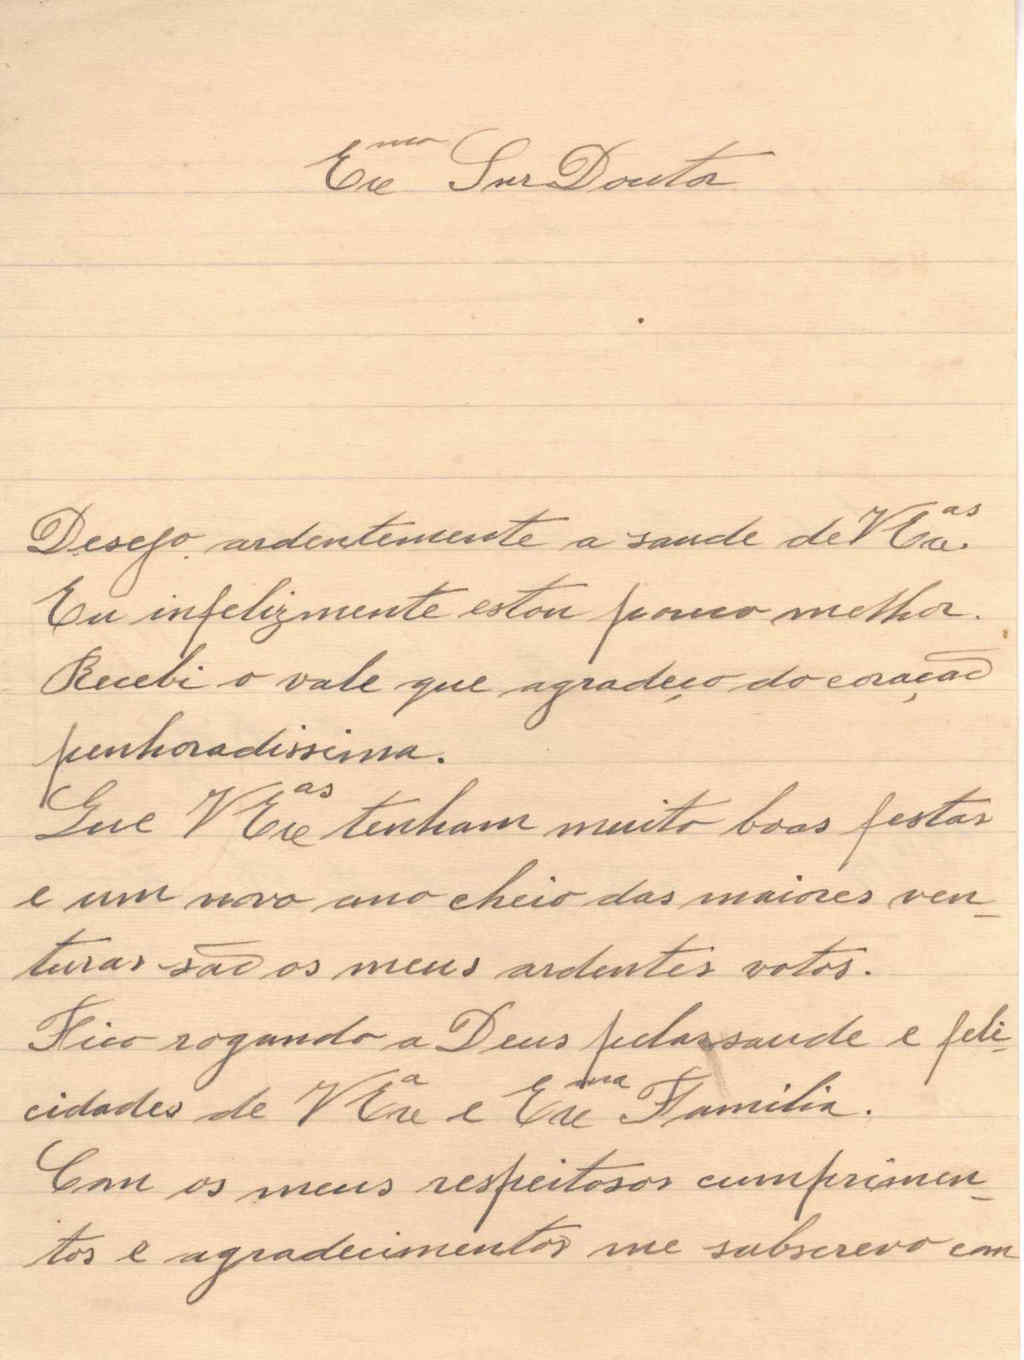 Exmo Snr Doutor
Desejo ardentemente a saude de V Exas.
Eu infelizmente estou pouco melhor.
Recebi o vale que agradeço do coração
penhoradissima.
Que V Exas tenham muito boas festas
e um novo ano cheio das maiores ven-
turas são os meus ardentes votos.
Fico rogando a Deus pela saude e feli-
cidades de V Exa e Exma Familia.
Com os meus respeitosos cumprimen-
tos e agradecimentos me subscrevo com